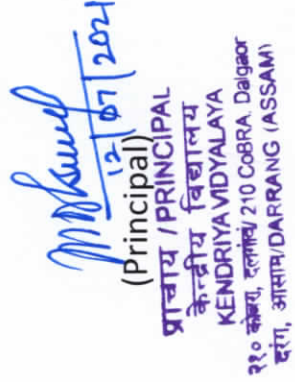 12/07/2021
(Principal)
प्राचार्य / PRINCIPAL
केन्द्रीय विद्यालय
KENDRIYA VIDYALAYA
२१० कोबरा, दलगाँव/ 210 CoBRA, Dalgaor
दरंग, आसाम/DARRANG (ASSAM)